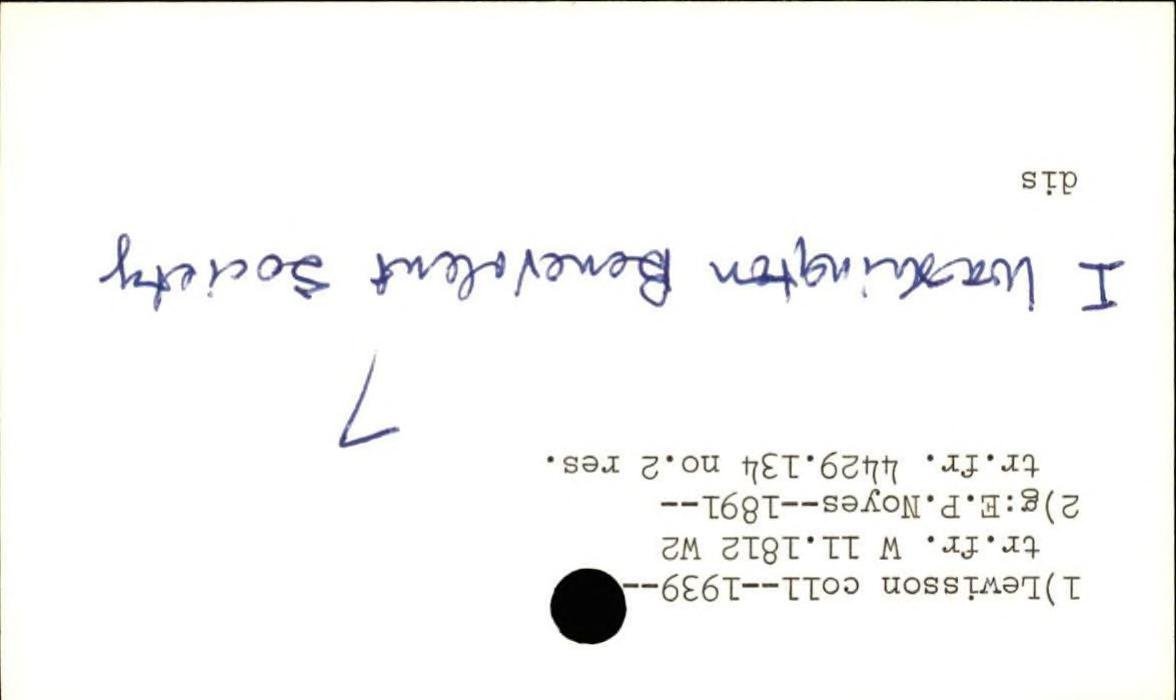 1)Lewisson coll--1939--
tr.fr. W 11.1812 W2
2)g:E.P.Noyes--1891--
tr.fr. 4429.134 no.2 res.
7
I Washington Benevolent Society
dis